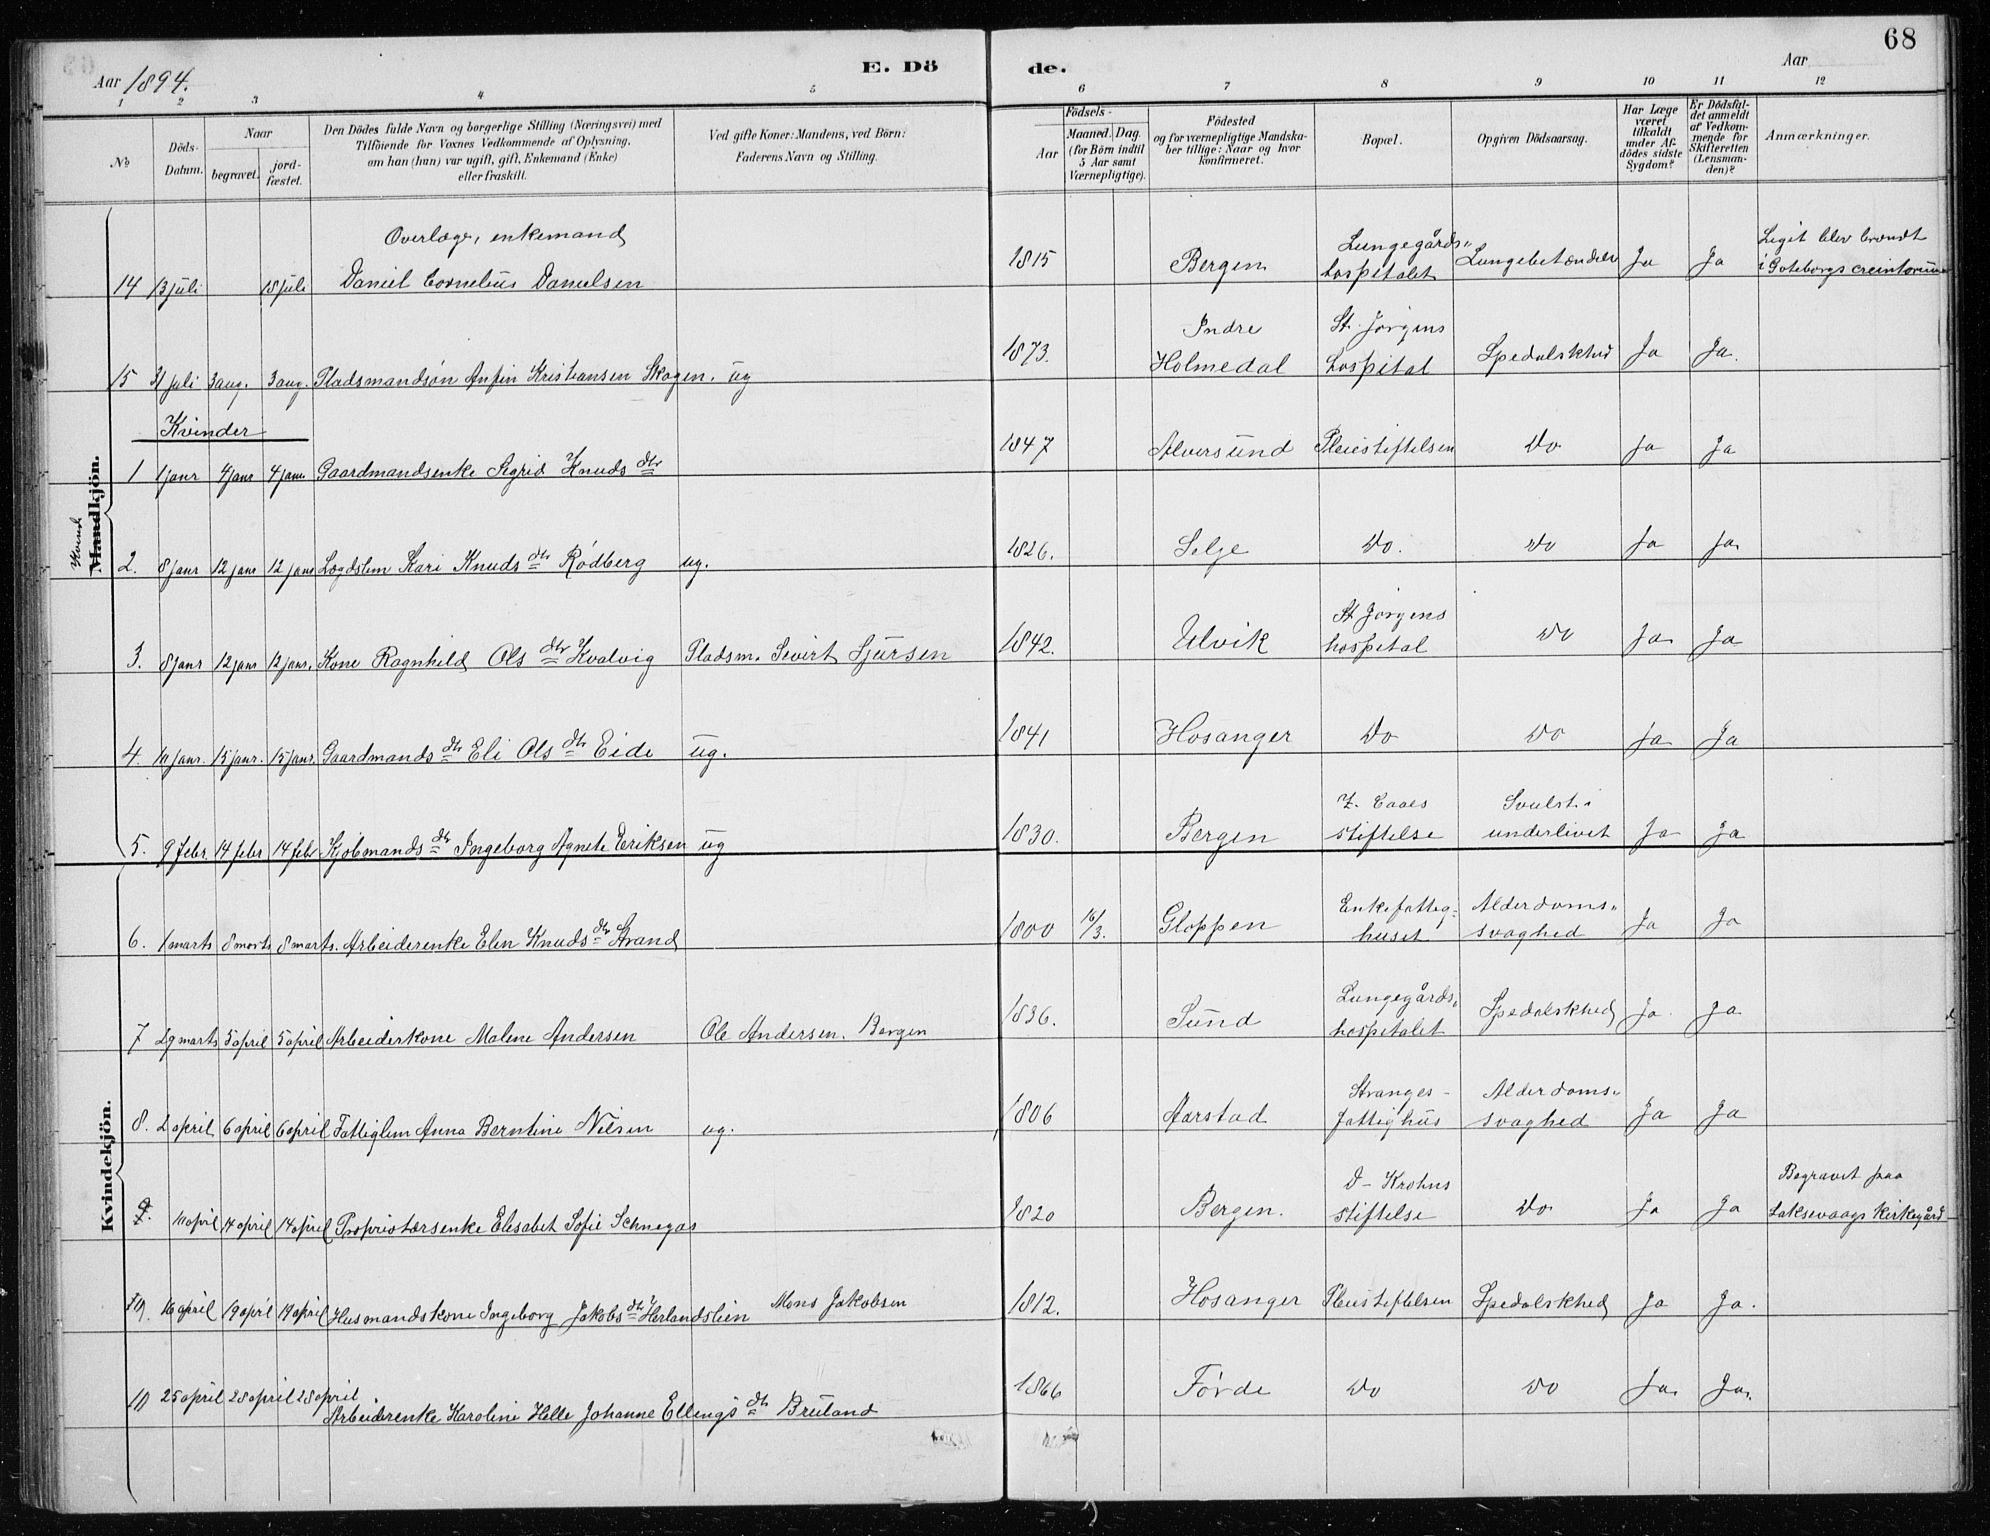 68
Aar 1894. E. Dö de. Aar
1 2 3 4 5 6 7 8 9 10 11 12
№ Döds-Datum. Naar begravet. jord-fæstet. Den Dödes fulde Navn og borgerlige Stilling (Næringsvei) med Tilföiende for Voxnes Vedkommende af Oplysning, om han (hun) var ugift, gift, Enkemand (Enke) eller fraskilt. Ved gifte Koner: Mandens, ved Börn: Faderens Navn og Stilling. Födsels- Aar Maaned. Dag. (for Börn indtil 5 Aar samt Værnepligtige). Födested og for værnepligtige Mandska-ber tillige: Naar og hvor konfirmeret. Bopæl. Opgiven Dödsaarsag. Har Læge været tilkaldt under Af-dödes sidste Sygdom? Er Dödsfal-det anmeldt af Vedkom-mende for Skifteretten (Lensman-den)? Anmærkninger.
Mandkjön. Kvind
14 13 juli 18 juli Overlæge, enkemand Daniel Cornelius Danielsen 1815 Bergen Lungegårds-hospitalet Lungebetændelse Ja Ja Liget blev brændt i Goteborgs
15 31 juli 3 aug. 3 aug. Pladsmandsøn Anfin Kristiansen Skogen. ug 1873. Indre Holmedal St. Jørgens hospital Spedalskhed Ja Ja.
Kvinder
1 1 janr 4 janr 4 janr Gaardmandsenke Sigrid Knuds dtr 1847 Alversund Pleiestiftelsen Do Ja Ja
2. 8 janr 12 janr 12 janr Lægdslem Kari Knuds dtr Rødberg ug. 1826. Selje Do. Do Ja Ja
3. 8 janr 12 janr 12 janr. Kone Ragnhild Ols dtr Kvalvig Pladsm. Sivert Sjursen 1842. Ulvik St. Jørgens hospital Do Ja Ja
4. 10 janr. 15 janr. 15 janr. Gaardmands dtr Eli Ols dtr Eide ug. 1841 Hosanger Do Do Ja Ja
5. 9 febr 14 febr 14 febr Kjøbmands dtr Ingeborg Agnete Eriksen ug 1830. Bergen Z. Caaes stiftelse Svulst i underlivet Ja Ja
Kvindekjön.
6. 1 marts 8 marts 8 marts. Arbeiderenke Elen Knuds dtr Strand 1800 16/3. Gloppen Enkefattig-huset Alderdoms-svaghed Ja Ja
7 29 marts 5 april 5 april Arbeiderskone Malene Andersen Ole Andersen. Bergen 1836. Sund Lungegårds-hospitalet Spedalskhed Ja Ja
8. 2 april 6 april 6 april Fattiglem Anna Berntine Nilsen ug. 1806 Aarstad Stranges-fattighus Alderdoms-svaghed Ja Ja
9. 10 april 14 april 14 april Proprietærsenke Elesabet Sofie Schnegas 1820 Bergen. D- Krohns stiftelse Do Ja Ja Begravet paa Laksevaags kirkegård
16 april 19 april 19 april Husmandskone Ingeborg Jakobs dtr Herlandslien Mons Jakobsen 1812. Hosanger Pleiestiftelsen Spedalskhed Ja Ja.
10 25 april 28 april 28 april Arbeiderenke Karoline Helle Johanne Ellings dtr Bruland 1866 Førde Do Do Ja Ja.